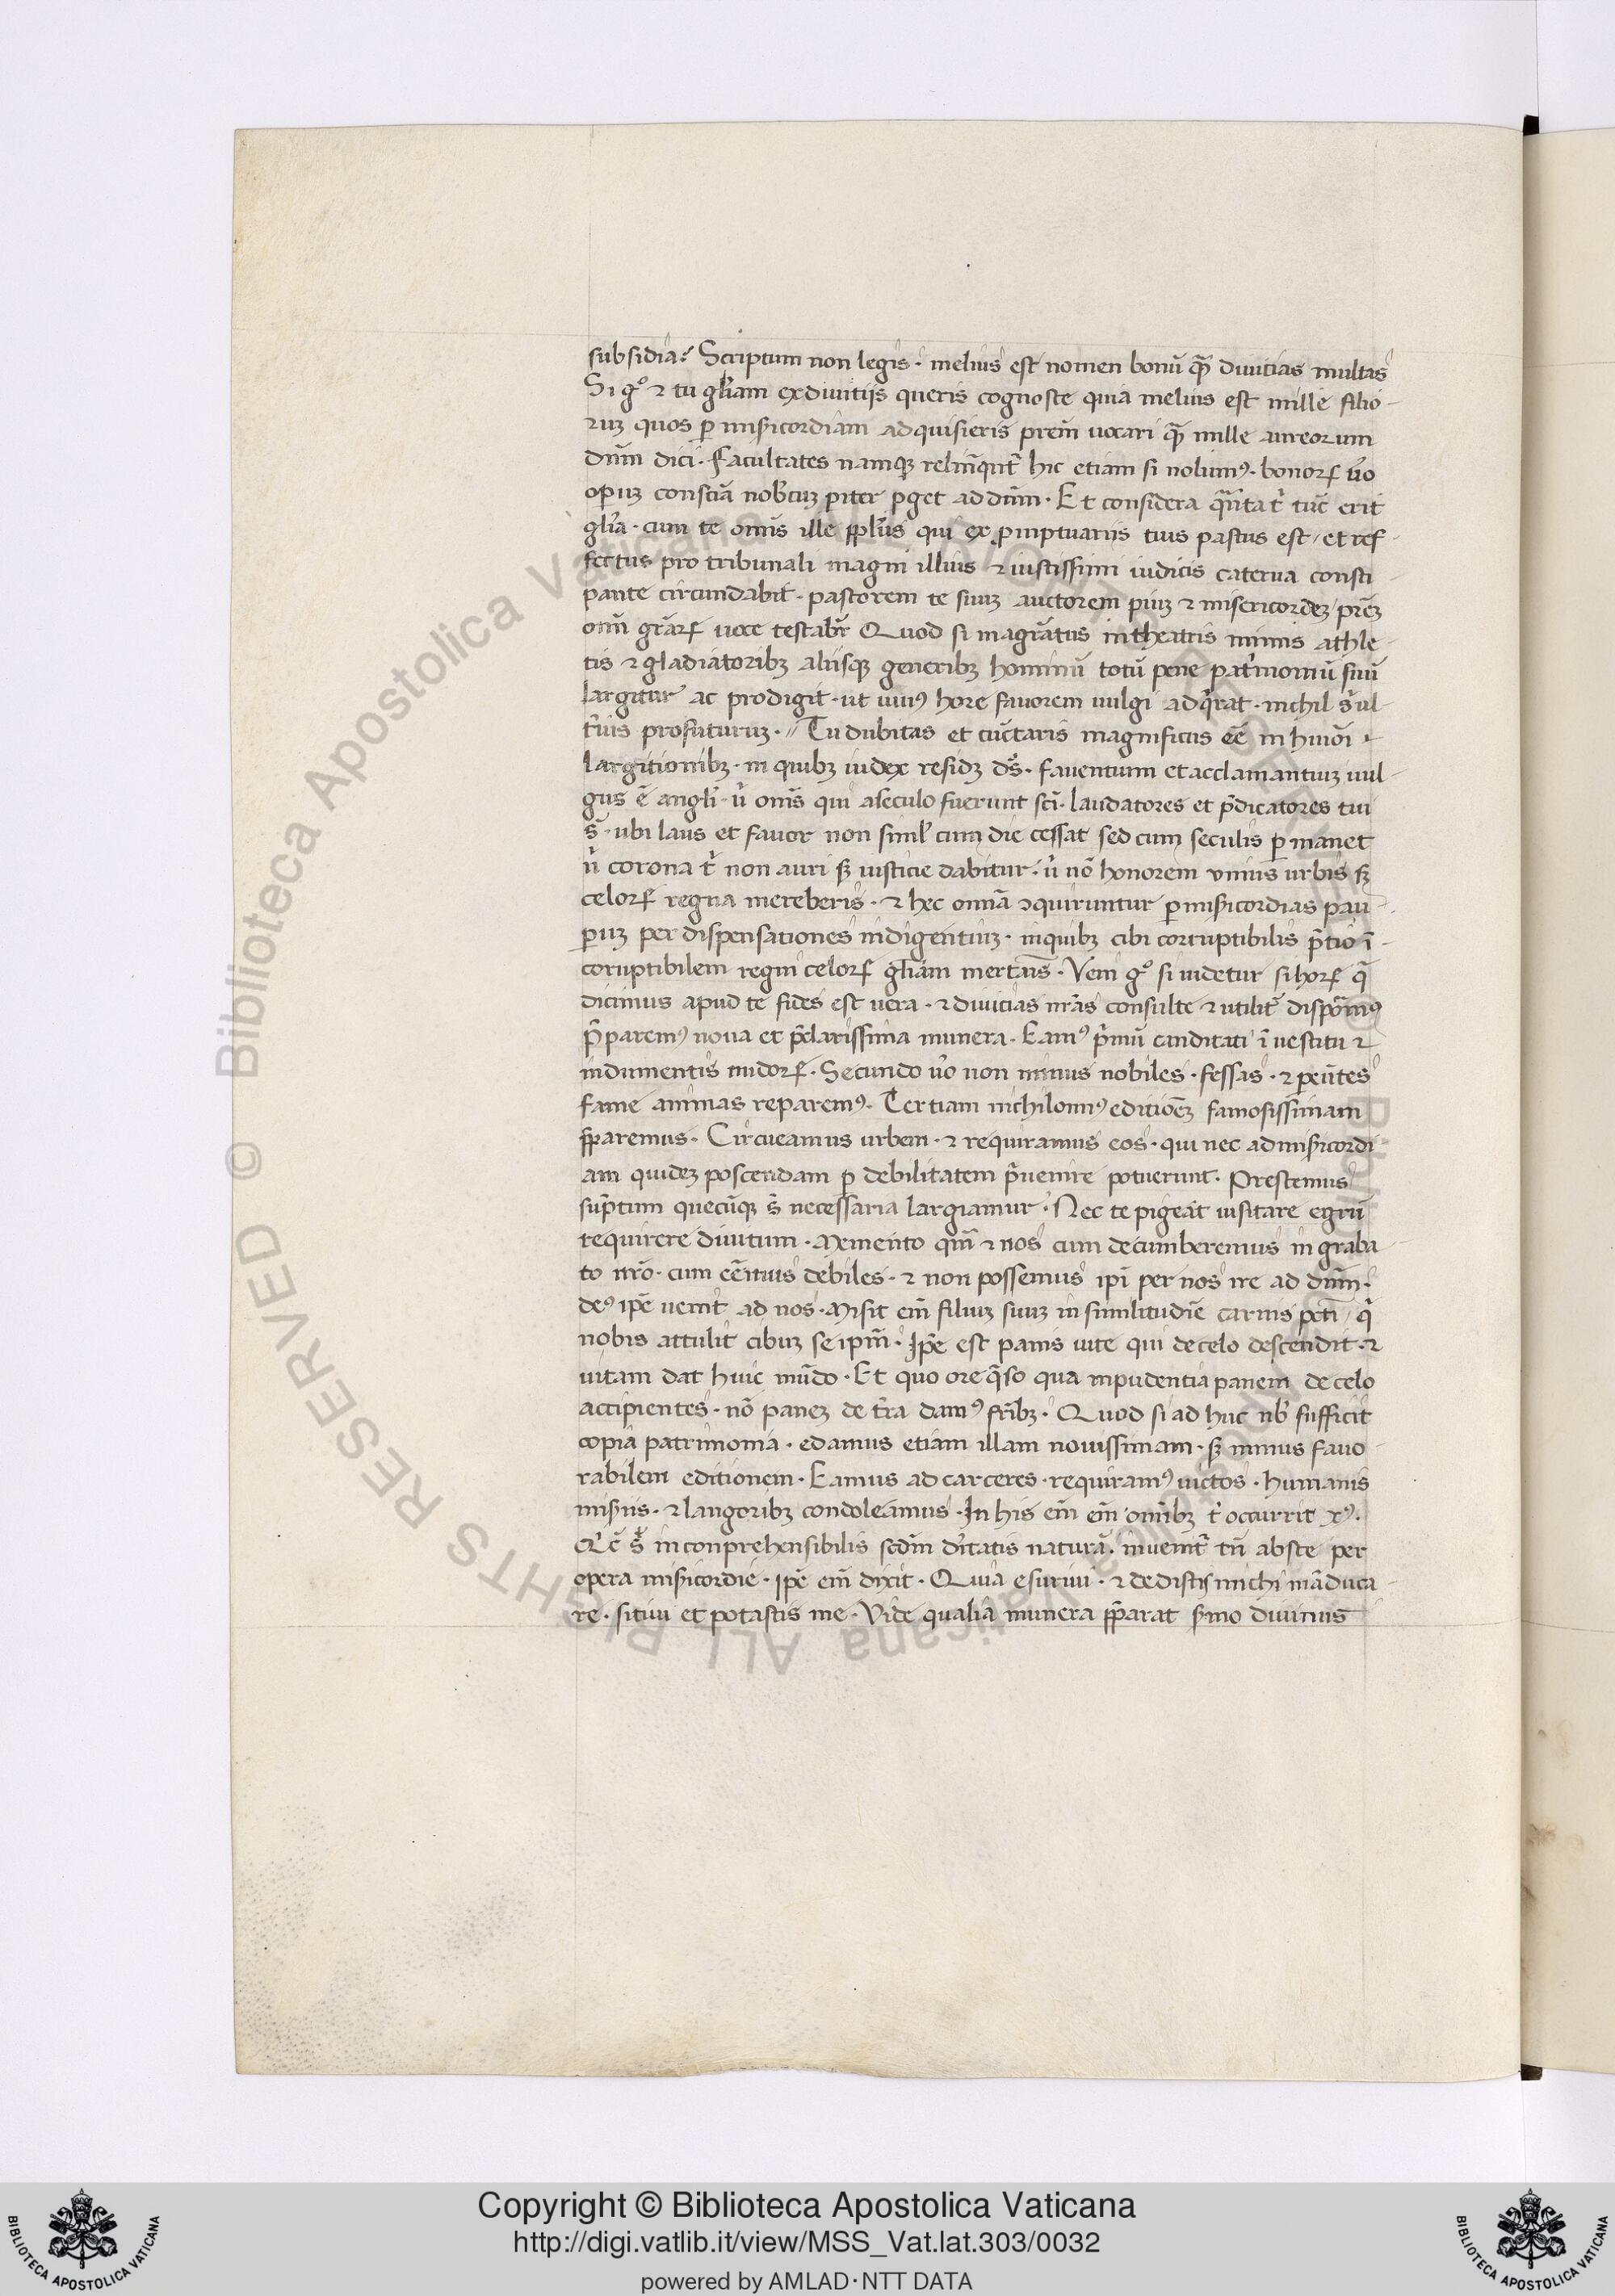 subsidia? Scriptum non legis · melius est nomen bonū quā diuitias multas
Si gͦ ⁊ tu gl̄iam ex diuitijs queris cognosce quia melius est mille filio-
rum quos ꝑ misicordiam adquisieris prem̄ uocari quā mille aureorum
dn̄m dici · Facultates namqꝫ relinq̄nt᷑ hic etiam si nolimꝰ · bonoꝝ ūo
opuꝫ nobcuꝫ ꝑget ad dn̄m · Et considera tūc erit
gl̄ia · cum te omīs ille ppl̄us qui ex promptuariis tuis pastus est / et ref-
fectus pro tribunali magni illius ⁊ iustissimi iudicis caterua consti-
pante circundabit · pastorem te suuꝫ auctorem piuꝫ ⁊ misericordeꝫ pr̄eꝫ
om̄i gr̄aꝝ uoce Quod si magr̄atus in theatris mimis athle-
tis ⁊ gladiatoribꝫ aliisqꝫ generibꝫ hominū totū pene patrimoniū suū
largitur ac prodigit · ut uniꝰ hore fauorem uulgi adq̄rat · nichil ul-
terius profuturuꝫ · // Tu dubitas et cūctaris magnificus eē in huiōi
largitionibꝫ · in quibꝫ iudex residꝫ ds̄ · fauentium et acclamantiuꝫ uul-
gus ē angl̄i · u̇ om̄s qui a seculo fuerunt sc̄i · laudatores et p̄dicatores tui
s̄ · ubi laus et fauor non siml̄ cum die cessat sed cum seculis ꝑmanet
u̇ corona t̄ non auri sꝫ iusticie dabitur · u̇ nō honorem unius urbis sꝫ
celoꝝ regna mereberis · ⁊ hec omīa ꝯquiruntur ꝑ misicordias pau-
ꝑuꝫ per dispensationes indigentiuꝫ · in quibꝫ cibi corruptibilis p̄tio ī-
coruptibilem regni celoꝝ gl̄iam · Veni gͦ si uidetur si hoꝝ q̄
dicimus apud te fides est uera · ⁊ diuicias nr̄as consulte ⁊ utilit᷑
p̄paremꝰ noua et p̄clarissima munera · Eamꝰ p̄mū canditati ī uestitu ⁊
indumentis nudoꝝ · Secundo ūo non minus nobiles · fessas · ⁊ peūtes
fame animas reparemꝰ · Tertiam nichilominꝰ editiōeꝫ famosissimam
p̄paremus · Circueamus urbem · ⁊ requiramus eos · qui nec ad misicordi
am quideꝫ poscendam ꝑ debilitatem p̄uenire potuerunt · Prestemus
sūptum quecūqꝫ s̄ necessaria largiamur · Nec te pigeat uisitare egrū
requirere diuitum · Memento qm̄ ⁊ nos cum decumberemus in graba
to nr̄o · cum eēmus debiles · ⁊ non possemus ip̄i per nos ire ad dn̄m ·
deꝰ ip̄e uenit ad nos · Misit em̄ filiuꝫ suuꝫ in similitudīe carnis pcti / q̄
nobis attulit cibuꝫ se ip̄m · Ip̄e est panis uite qui de celo descendit · ⁊
uitam dat huic mūdo · Et quo ore q̄so qua inpudentia panem de celo
accipientes · nō paneꝫ de tr̄a damꝰ fr̄ibꝫ · Quod si ad huc nb̄ sufficit
copia patrimonia · edamus etiam illam nouissimam · sꝫ minus fauo-
rabilem editionem · Eamus ad carceres · requiramꝰ uictos · humanis
misiis · ⁊ langoribꝫ condoleamus · In his em̄ em̄ om̄ibꝫ t̄ occurrit xꝰ ·
inconprehensibilis scdm̄ natura · tn̄ abs te per
opera misicordie · ip̄e em̄ dixit · Quia esuriui · ⁊ dedistis michi māduca-
re · sitiui et potastis me · Vide qualia munera p̄parat smo diuinus
Copyright © Biblioteca Apostolica Vaticana
http://digi.vatlib.it/view/MSS_Vat.lat.303/0032
powered by AMLAD · NTT DATA
BIBLIOTECA APOSTOLICA VATICANA
BIBLIOTECA APOSTOLICA VATICANA